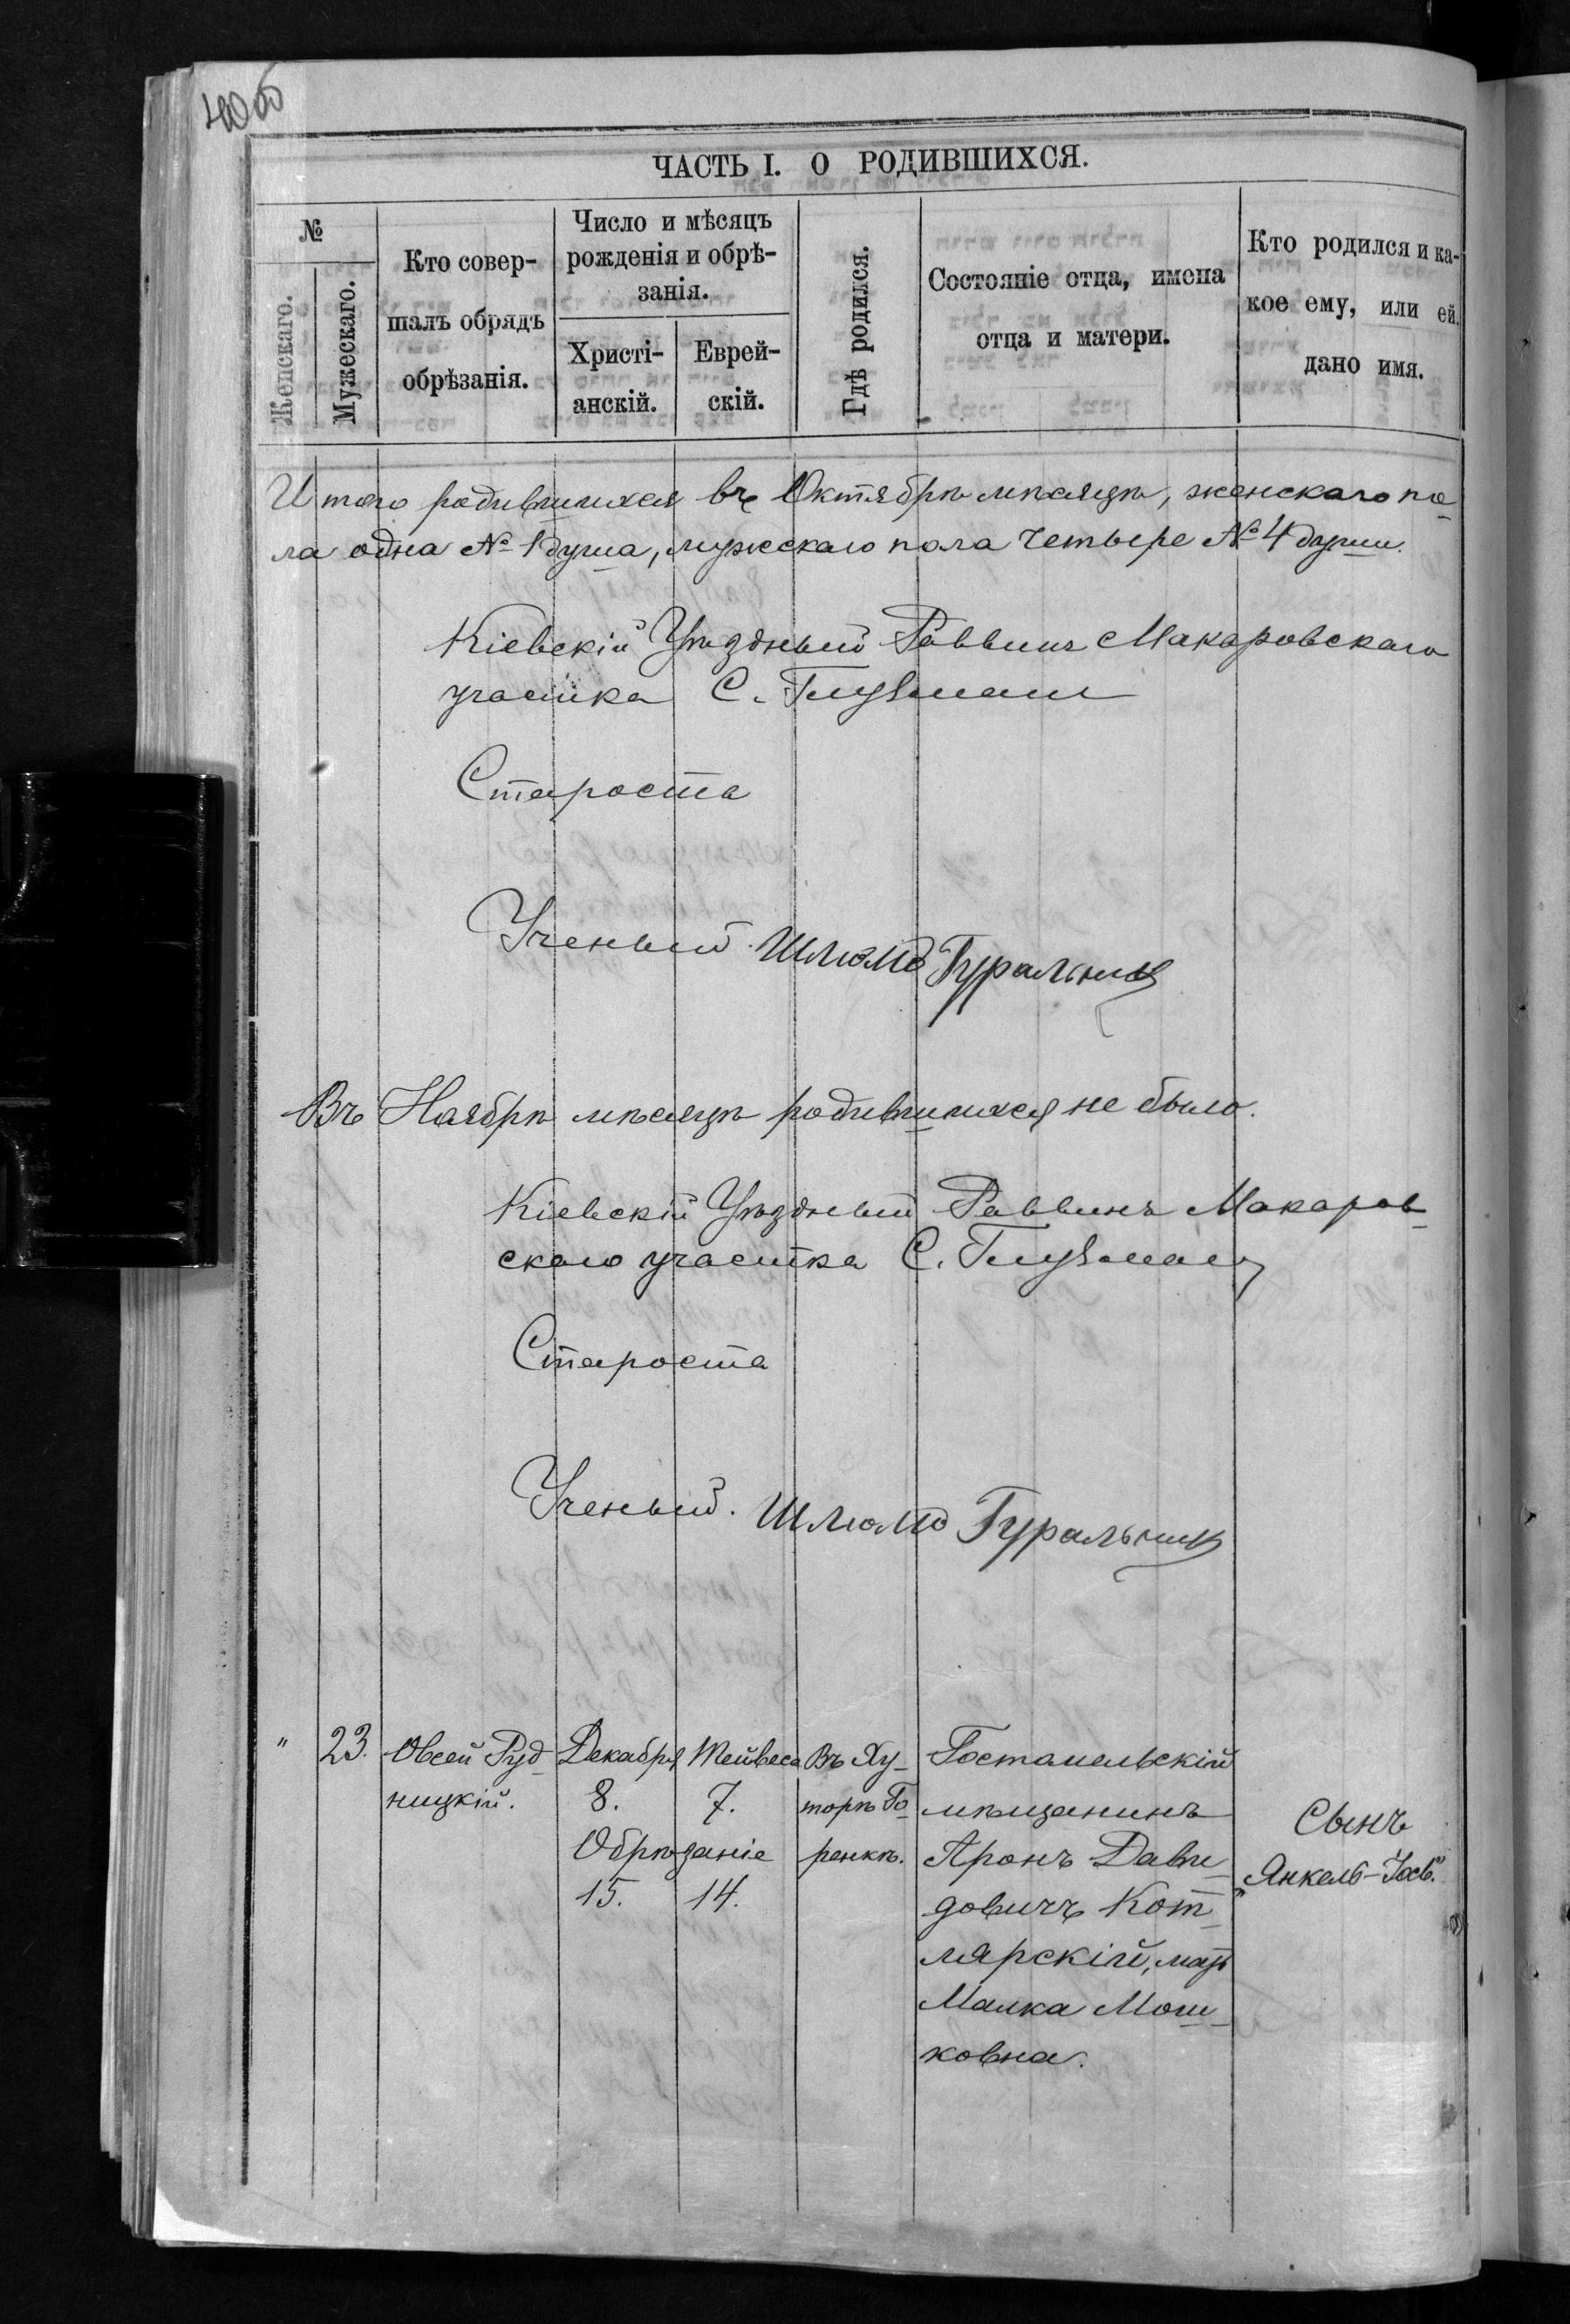 40об
ЧАСТЬ I. О РОДИВШИХСЯ.
№
Женскаго.
Мужескаго.
Кто совер-
шалъ обрядъ
обрѣзанія.
Число и мѣсяцъ
рожденія и обрѣ-
занія.
Христі-
анскій.
Еврей-
скій.
Гдѣ родился.
Состояніе отца, имена
отца и матери.
Кто родился и ка-
кое ему, или ей,
дано имя.
Итого родившихся въ Октябрѣ мѣсяцѣ, женскаго по-
ла одна № 1 душа, мужскаго пола четыре № 4 души.
Кіевскій Уѣздный Раввинъ Макаровскаго
участка С. Глузман
Староста
Ученый Шлюмо Гуральник
Въ Ноябрѣ мѣсяцѣ родившихся не было.
Кіевскій Уѣздный Раввинъ Макаров-
скаго участка С. Глузман
Староста
Ученый. Шлюмо Гуральник
" 23.
Овсей Руд-
ницкій.
Декабря
8.
Обрѣзаніе
15.
Тейвеса
7.
14.
Въ Ху-
торѣ Го-
ренкѣ.
Гостомельскій
мѣщанинъ
Аронъ Дави-
довичъ Кот-
лярскій, мать
Малка Мош-
ковна.
Сынъ
"Янкель-Іось".